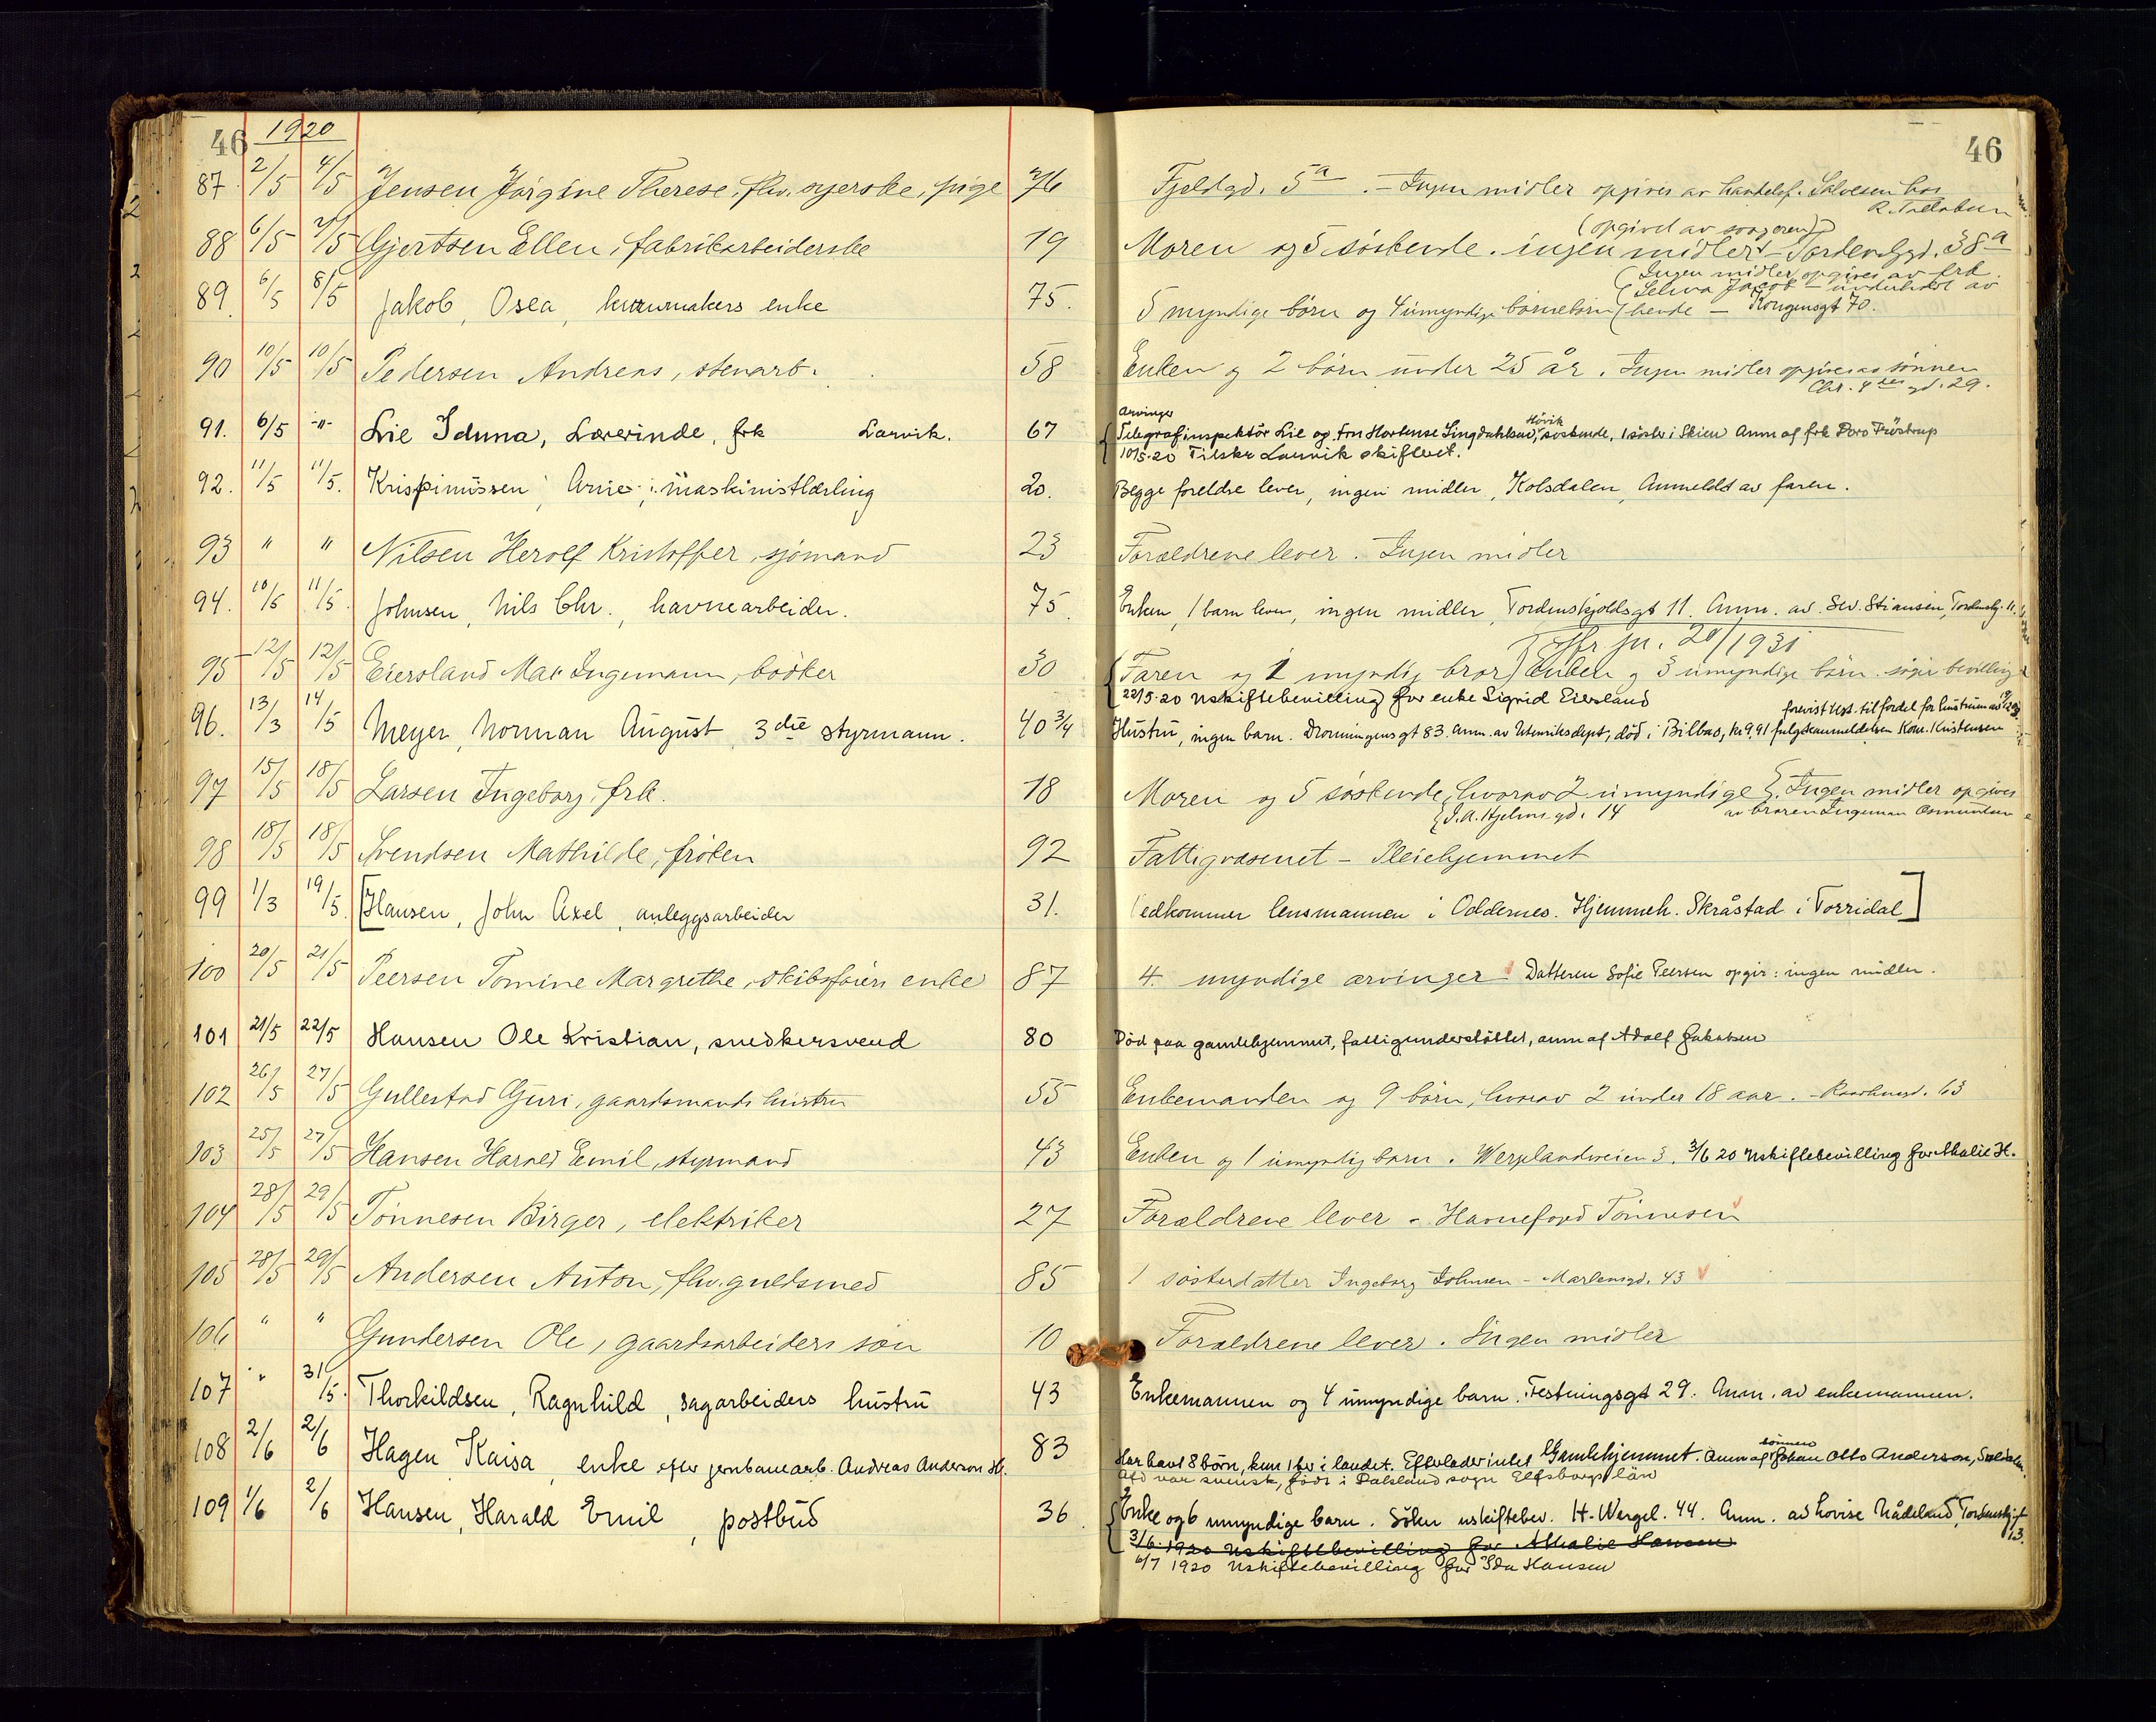 46 1920
46
87. 2/5 4/5 Jensen Jörgine Therese, fhv. syerske, pige 76 Fjeldgd. 5a. – Ingen midler opgives av handelsf. Salvesen hos
R.
88 6/5 7/5 Gjertsen Ellen, fabrikarbeiderske 19 Moren og 5 söskende. ingen midler – Tordenskgd. 38a
(opgivet av svogeren)
89. 6/5 8/5 Jakob, Osea, enke 75. 5 myndige börn og 4 umyndige barnebörn
(Ingen midler opgives av frk.
(Selma Jacob – underholdt av
(hende – Kongensgt 70.
90 10/5 10/5 Pedersen Andreas, stenarb. 58 Enken og 2 börn under 25 år. Ingen midler opgives av sönnen
Chr. 4des gd. 29.
91. 6/5 -"- Lie Iduna, Lærerinde, frk Larvik. 67 Arvinger
Telegrafinspektör Lie og Fru Hortense Lingdahlsen, Hövik söskende, 1 söster i Skien Anm af frk Dora Fröstrup
10/5-20 Tilskr Larvik skifteret.
92. 11/5 11/5. Krispinussen, Arne, maskinistlærling 20. Begge foreldre lever, ingen midler, Kolsdalen, Anmeldt av faren.
93 " " Nilsen Herolf Kristoffer, sjömand 23 Forældrene lever. Ingen midler
94. 10/5 11/5. Johnsen, Nils Chr., havnearbeider. 75. Enken, 1 barn lever, ingen midler, Tordenskjoldsgt 11. Anm. av Sev. Stiansen, Tordenskj. 11.
95 12/5 12/5 Eiersland Max Ingemann, bödker 30 (Faren og 1 myndig bror) Enken og 3 umyndige börn. söger bevilling
jfr jn. 20/1931
22/5-20 Uskiftebevilling for enke Sigrid Eiersland
96. 13/3 14/5 Meyer, Norman August, 3die styrmann. 40 3/4 Hustru, ingen barn. Dronningensgt 83. anm. av Utenriksdept, död i Bilbao, kr 9,91 fulgte anmeldelsen Kom. Kristensen
forevist test. til fordel for hustruen
97 15/5 18/5 Larsen Ingeborg, frk. 18 Moren og 5 söskende, hvorav 2 umyndige. Ingen midler opgives
J.A. Hjelms gd. 14 av broren Ingeman Osmundsen
98 18/5 18/5 Svendsen Mathilde, fröken 92 Fattigvæsenet – Pleiehjemmet
99 1/3 19/5. [Hansen, John Axel, anleggsarbeider 31. Vedkommer lensmannen i Oddernes. Hjemmeh. Skråstad i Torridal]
100 20/5 21/5 Peersen Tomine Margrethe, skibsförers enke 87 4 myndige arvinger – Datteren Sofie Peersen opgir: ingen midler.
101 21/5 22/5 Hansen Ole Kristian, snedkersvend 80 Död paa gamlehjemmet, fattigunderstöttet, anm af Adolf Jakobsen
102 26/5 27/5 Gullestad Guri, gaardsmands hustru 55 Enkemanden og 9 börn, hvorav 2 under 18 aar. – Raadhusgd. 63
103 25/5 27/5 Hansen Harald Emil, styrmand 43 Enken og 1 umyndig barn. Wergelandsveien 3. 3/6 20 Uskiftebevilling for Athalie H.
104 28/5 29/5 Tönnesen Birger, elektriker 27 Forældrene lever – Havnefogd Tönnesen
105 28/5 29/5 Andersen Anton, fhv. guldsmed 85 1 sösterdatter Ingeborg Johnsen – Markensgd. 43
106 " " Gundersen Ole, gaardsarbeiders sön 10 Forældrene lever. Ingen midler
107 " 31/5. Thorkildsen, Ragnhild, sagarbeiders hustru 43 Enkemannen og 4 umyndige barn. Festningsgt 29. Anm. av enkemannen.
108 2/6 2/6 Hagen, Kaisa, enke efter jernbanearb. Andreas Anderson H. 83 Har havt 8 börn, kun 1 her i landet. Efterlader intet Gamlehjemmet. Anm af sönnen Johan Otto Anderson,
Afd var svensk, födt i Dalsland sogn Elfsborgs län
109 1/6 2/6 Hansen, Harald Emil, postbud 36. Enke og 6 umyndige barn. Söker uskiftebev. H. Wergel. 44. Anm. av Lovise Nådeland, Tordenskj. gt 13.
3/6. 1920 Uskiftebevilling for Athalie Hansen
6/7 1920 Uskiftebevilling for Ida Hansen